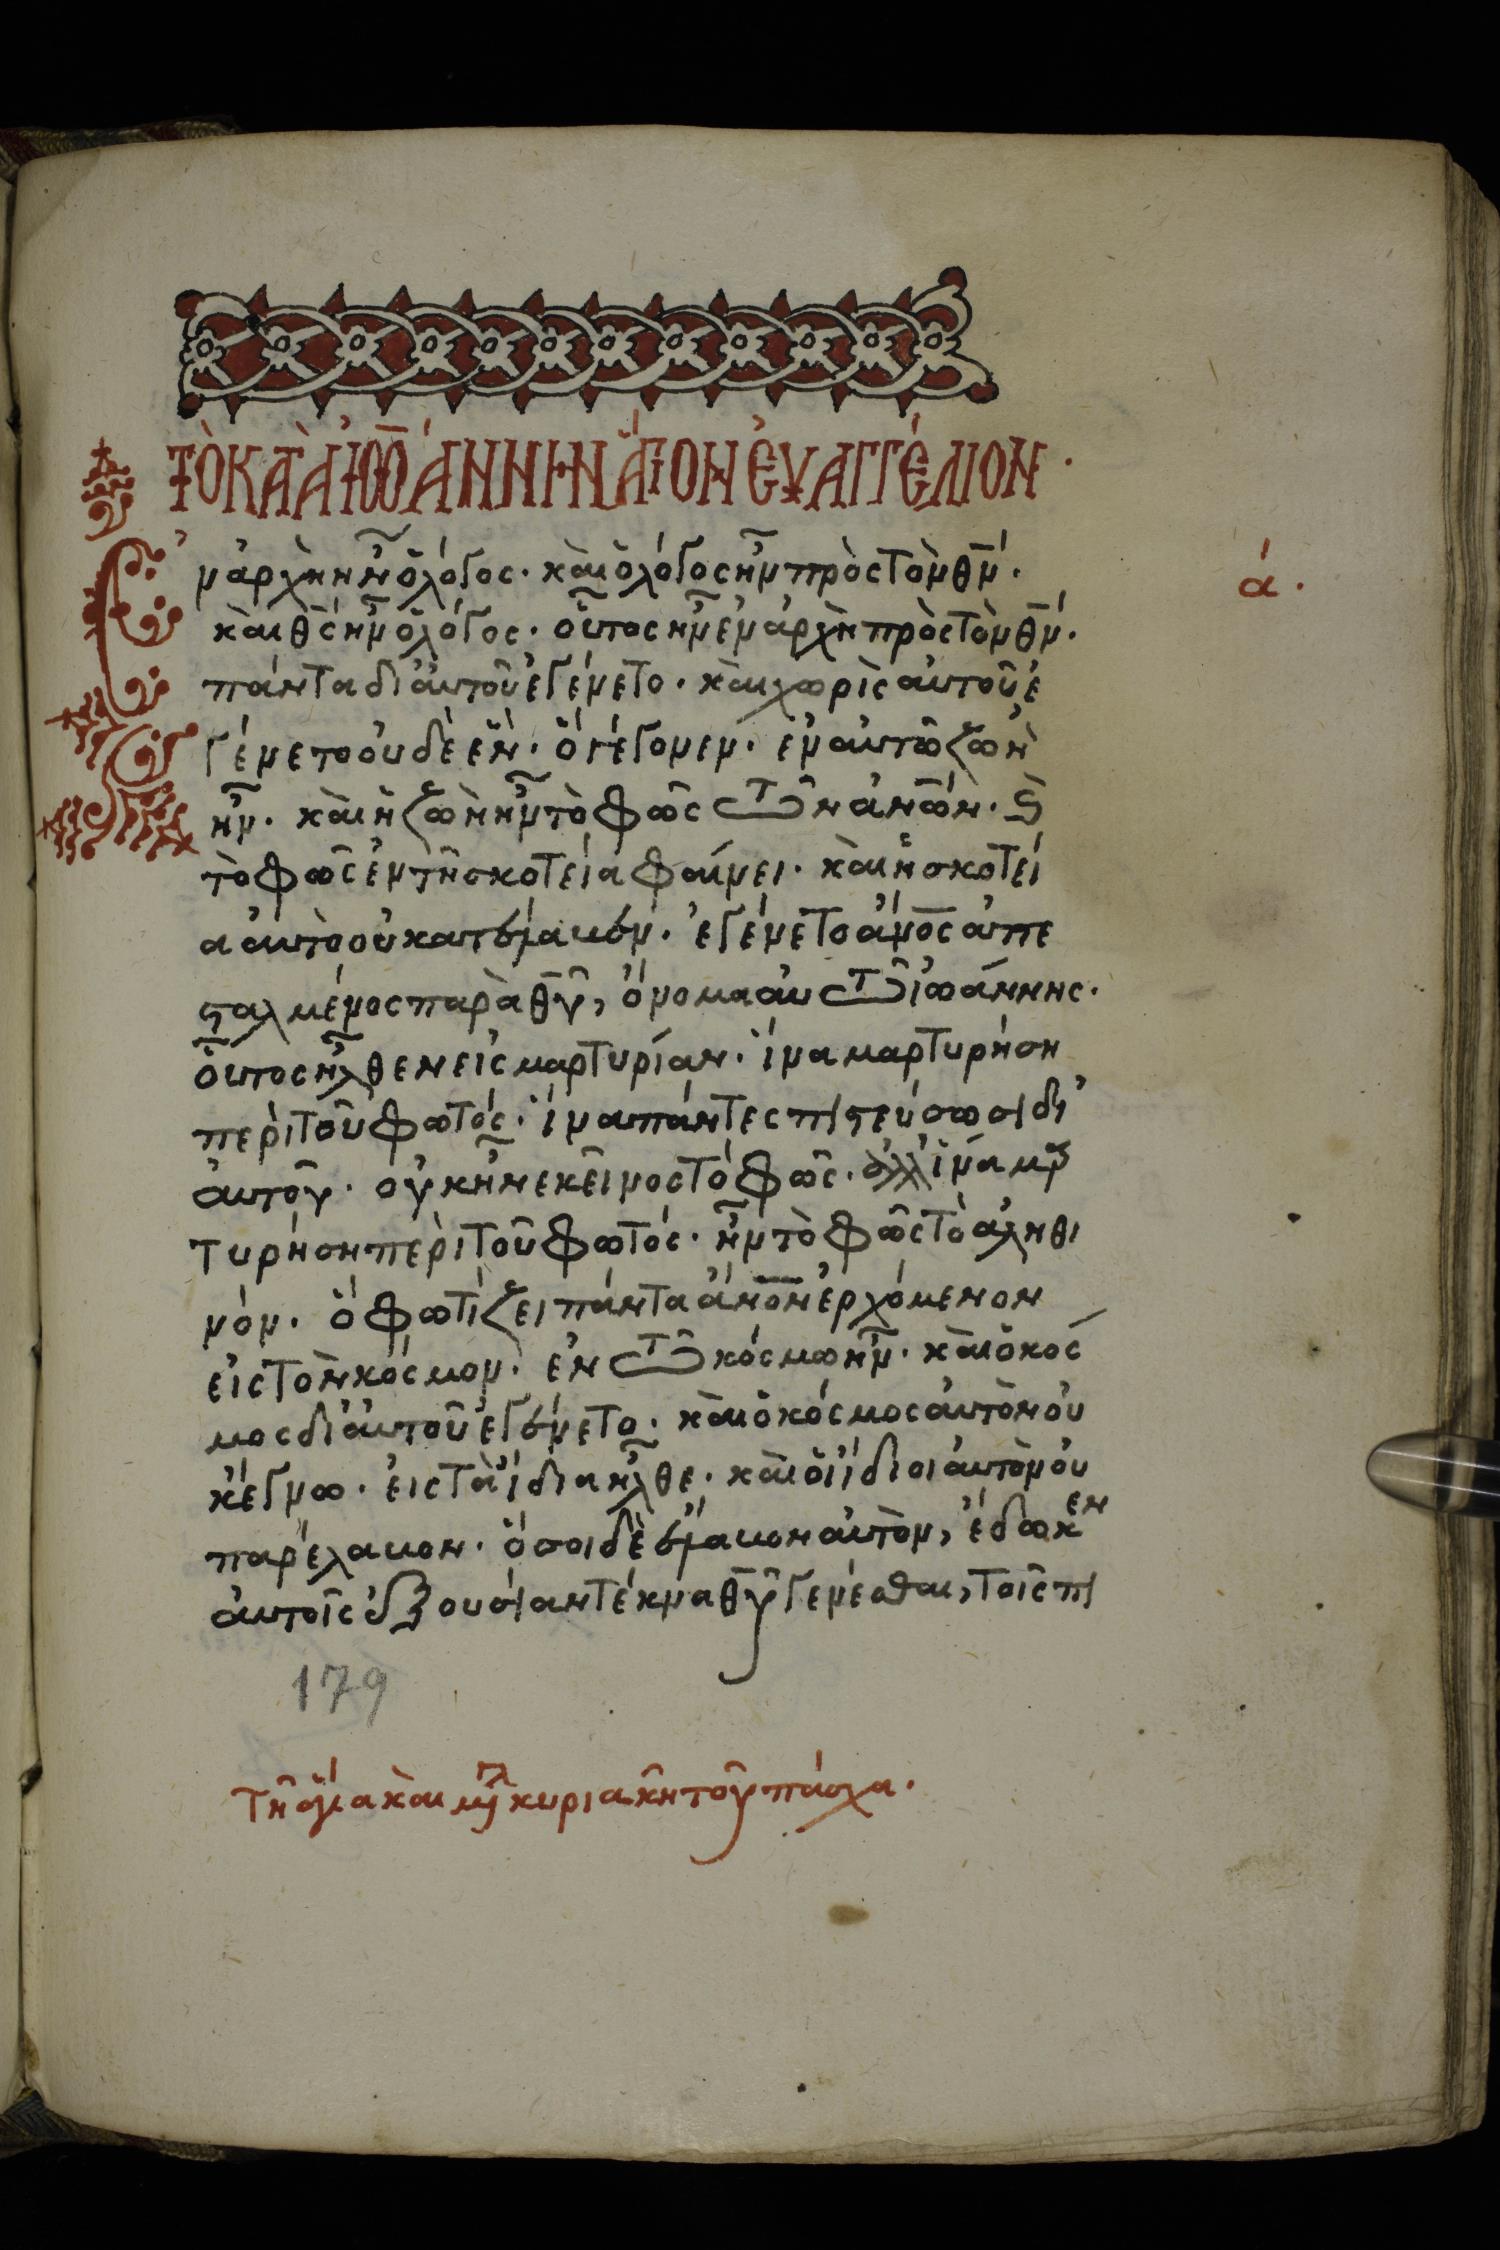 τὸ κατὰ ἰωάννην ἅγιον ἐυαγγέλιον.
Ἐν ἀρχὴ ἦν ὁ λόγος. καὶ ὁ λόγος ἦν πρὸς τὸν θν̅.
ά.
καὶ θς̅ ἦν ὁ λόγος. οὗτος ἦν ἐν ἀρχὴ πρὸς τὸν θν̅.
πάντα δι ἀυτοῦ ἐγένετο. καὶ χωρὶς αὐτοῦ ἐ
γένετο ὀυδὲ ἕν. ὃ γέγονεν. ἐν αὐτῶ ζωὴ
ἦν. καὶ ἡ ζωὴ ἦν τὸ φῶς τῶν ἀνῶν̅. ϗ
τὸ φῶς ἐν τῆ σκοτεία φαίνει. καὶ ἡ σκοτεί
α ἀυτὸ οὐ κατέλαβεν. ἐγένετο ἄνος̅ ἀπε
σταλμένος παρὰ θυ̅, ὄνομα ἀυτῶ ἰωάννης.
οὗτος ἦλθεν εἰς μαρτυρίαν. ἵνα μαρτυρήση
περὶ τοῦ φωτός. ἵνα πάντες πιστεύσωσι δι
ἀυτοῦ. οὐκ ἦν ἐκεῖνος τὸ φῶς. ἀλλ ἵνα μαρ
τυρήση περὶ τοῦ φωτός. ἦν τὸ φῶς τὸ ἀληθι
νόν. ὃ φωτίζει πάντα ἄνον̅ ἐρχόμενον
εἰς τὸν κόσμον. ἐν τῶ κόσμω ἦν. καὶ ὁ κόσ
μος δι ἀυτοῦ ἐγένετο. καὶ ὁ κόσμος ἀυτὸν οὐ
κ ἔγνω. ἐις τὰ ἴδια ἦλθε. καὶ ὁι ἴδιοι ἀυτὸν ὀυ
παρέλαβον. ὅσοι δὲ ἔλαβον ἀυτὸν, ἔδωκεν
ἀυτοῖς ἐξουσίαν τέκνα θυ̅ γενέσθαι, τοῖς πι
179
τῆ ἁγία καὶ μγλ κυριακῆ τοῦ πάσχα.